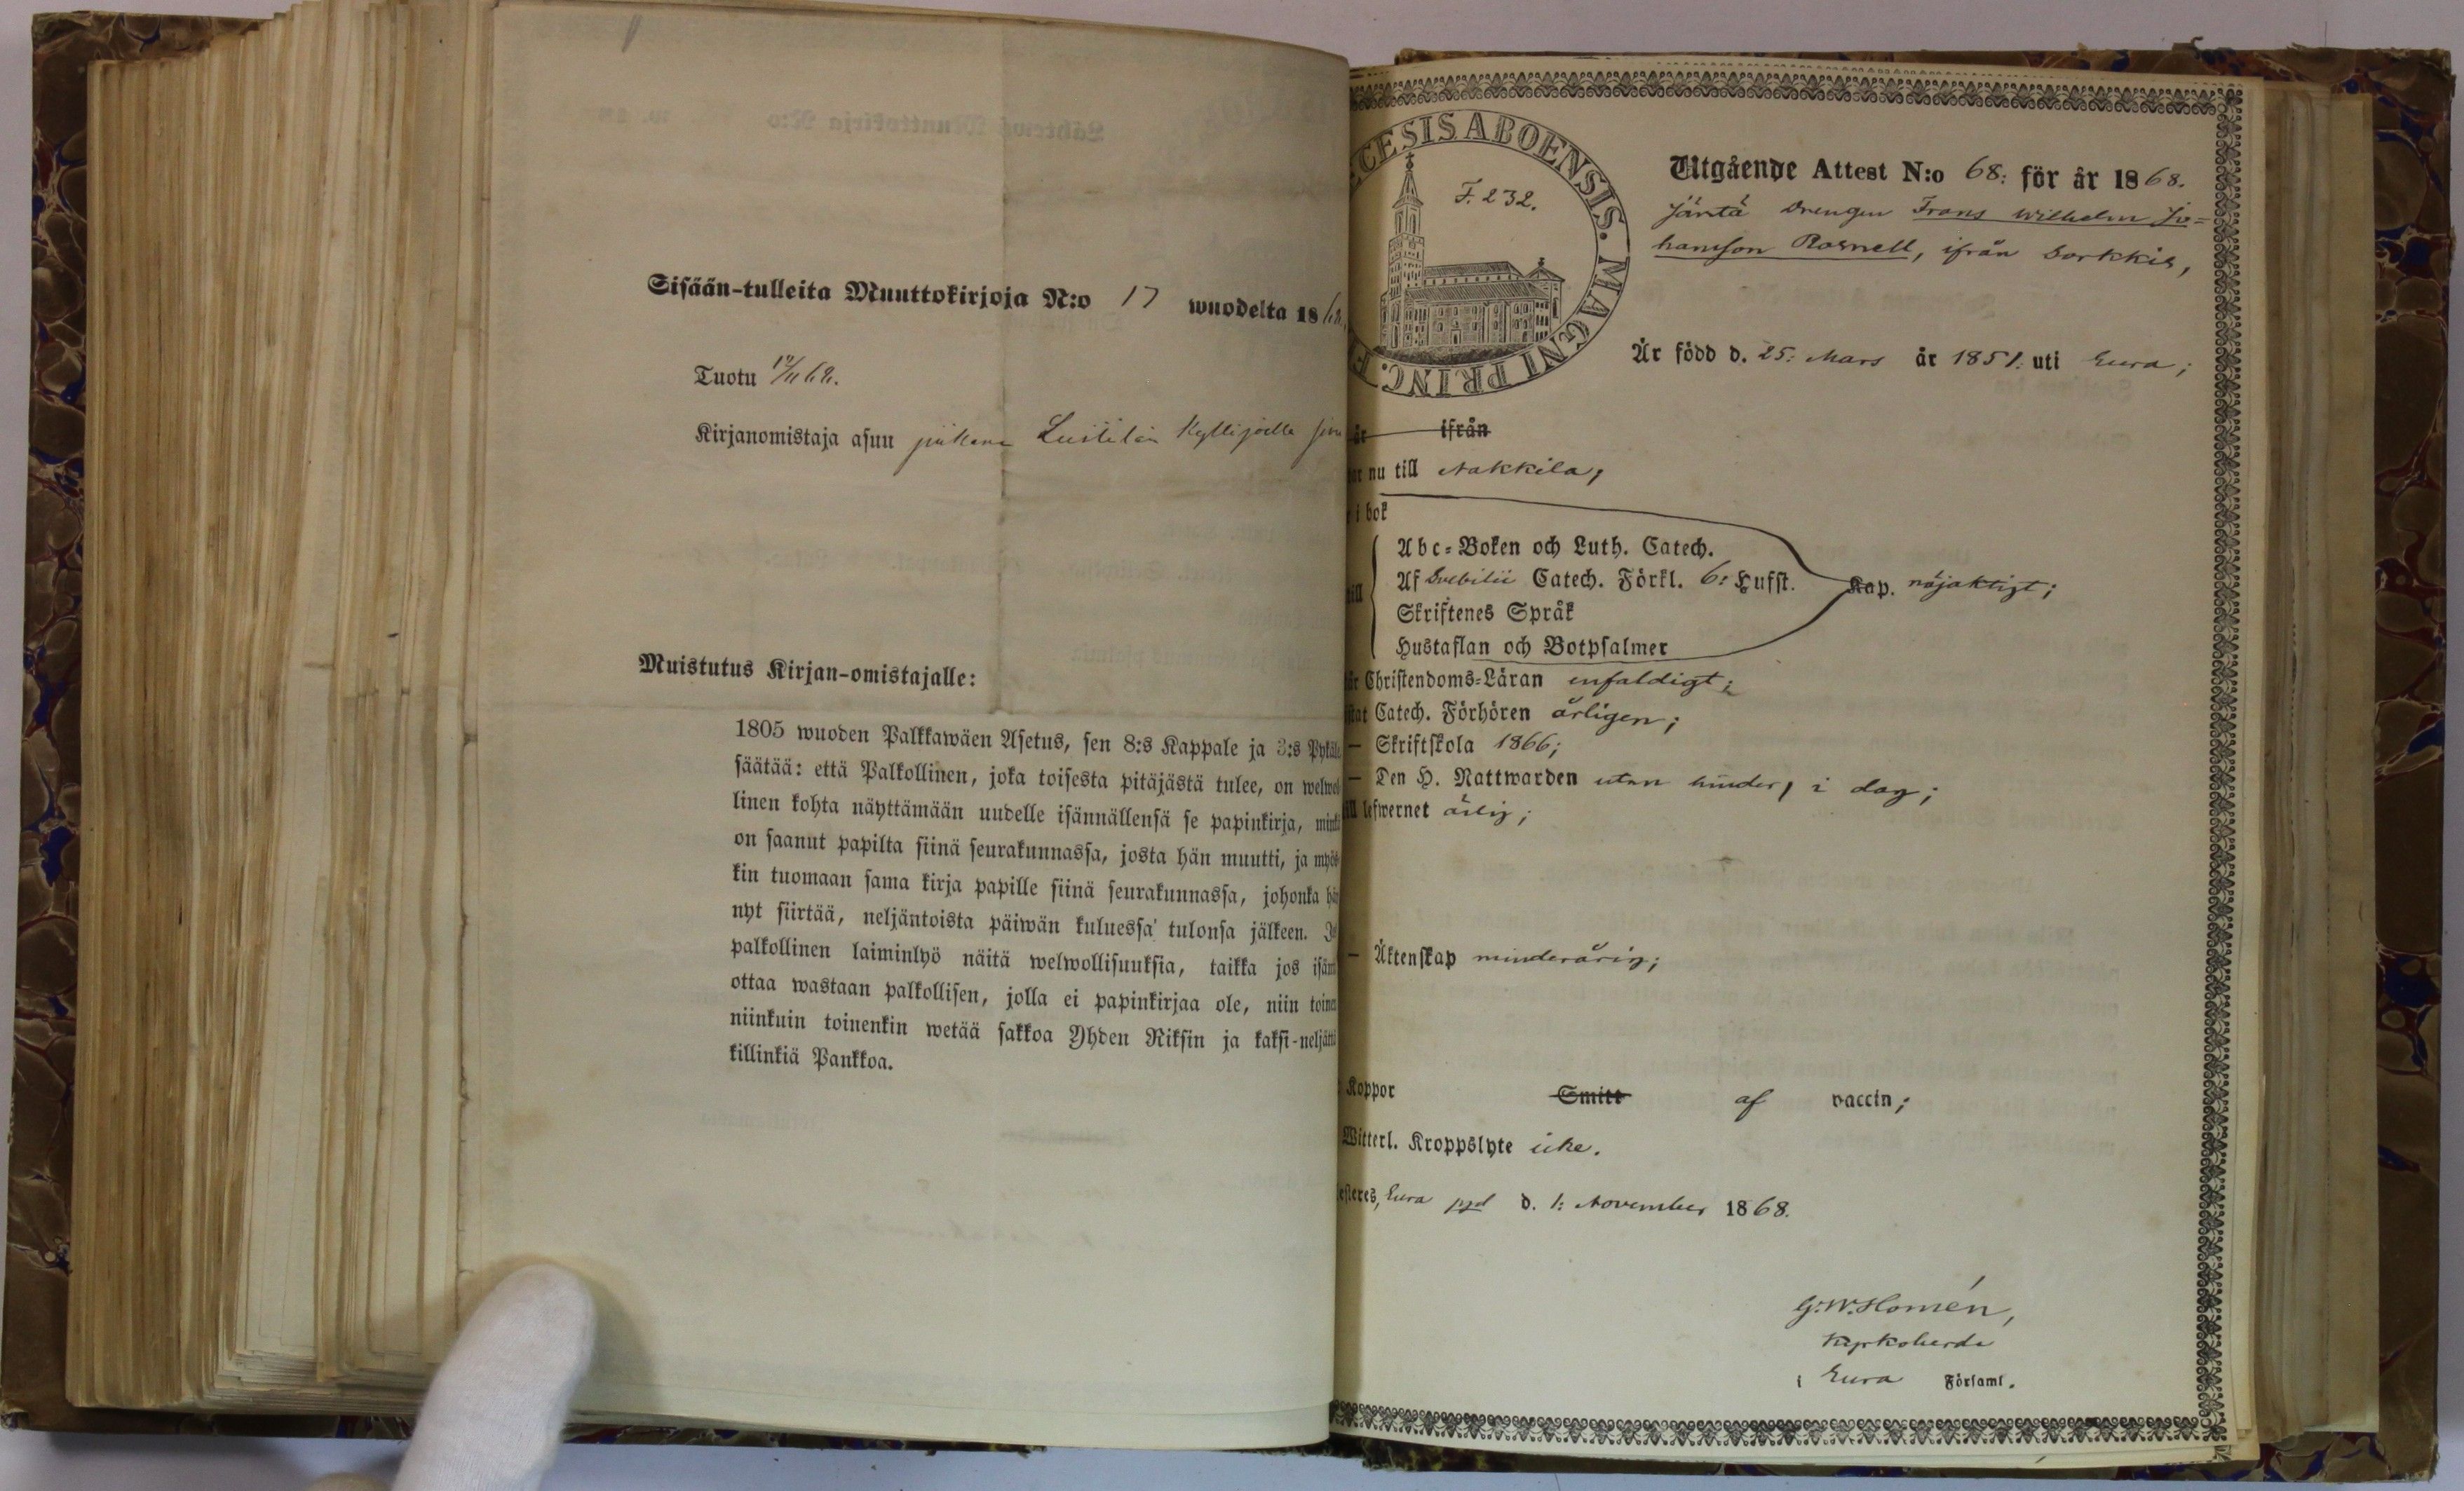 Sisään-tulleita Muuttokirjoja N:o 17 wuodelta 1868.
Tuotu 17/11 68.
Kirjanomistaja asuu piikana Kyllijoella
Muistutus Kirjan-omistajalle:
1805 wuoden Palkkawäen Asetus, sen 8:s Kappale ja 3:s Pykälä
säätää: että Palkollinen, joka toisesta pitäjästä tulee, on welwol
linen kohta näyttämään uudelle isännällensä se papinkirja, minkä
on saanut papilta siinä seurakunnassa, josta hän muutti, ja myös-
kin tuomaan sama kirja papille siinä seurakunnassa, johonka hän
nyt siirtää, neljäntoista päiwän kuluessa tulonsa jälkeen. Jos
palkollinen laiminlyö näitä welwollisuuksia, taikka jos isän
ottaa wastaan palkollisen, jolla ei papinkirjaa ole, niin toinen
niinkuin toinenkin wetää sakkoa Yhden Riksin ja kaksi-neljättä
killinkiä Pankkoa.
CESIS ABOENSIS. MAGNI PRINC. F
F. 232.
Utgående Attest N:o 68: för år 1868.
Drengen Frans Wilhelm Jo=
hansson Rosnell, ifrån Sorkkis,
Är född d. 25: Mars år 1851: uti Eura;
är ifrån
nu till Nakkila,
i bok
Abc-Boken och Luth. Catech.
till Af Svebilii Catech. Förkl. 6: Hufst. Kap. nöjaktigt;
Skriftenes Språk
Hustaflan och Botpsalmer
Christendoms-Läran enfaldigt;
Catech. Förhören årligen;
— Skriftskola 1866;
— Den H. Nattwarden utan hinder, i dag;
till lefwernet ärlig;
— Äktenskap minderårig;
Koppor Smitt af vaccin;
Witterl. Kroppslyte icke.
esteres, Eura pgd d. 1: November 1868.
G. W. Homén,
Kyrkoherde
i Eura Församl.